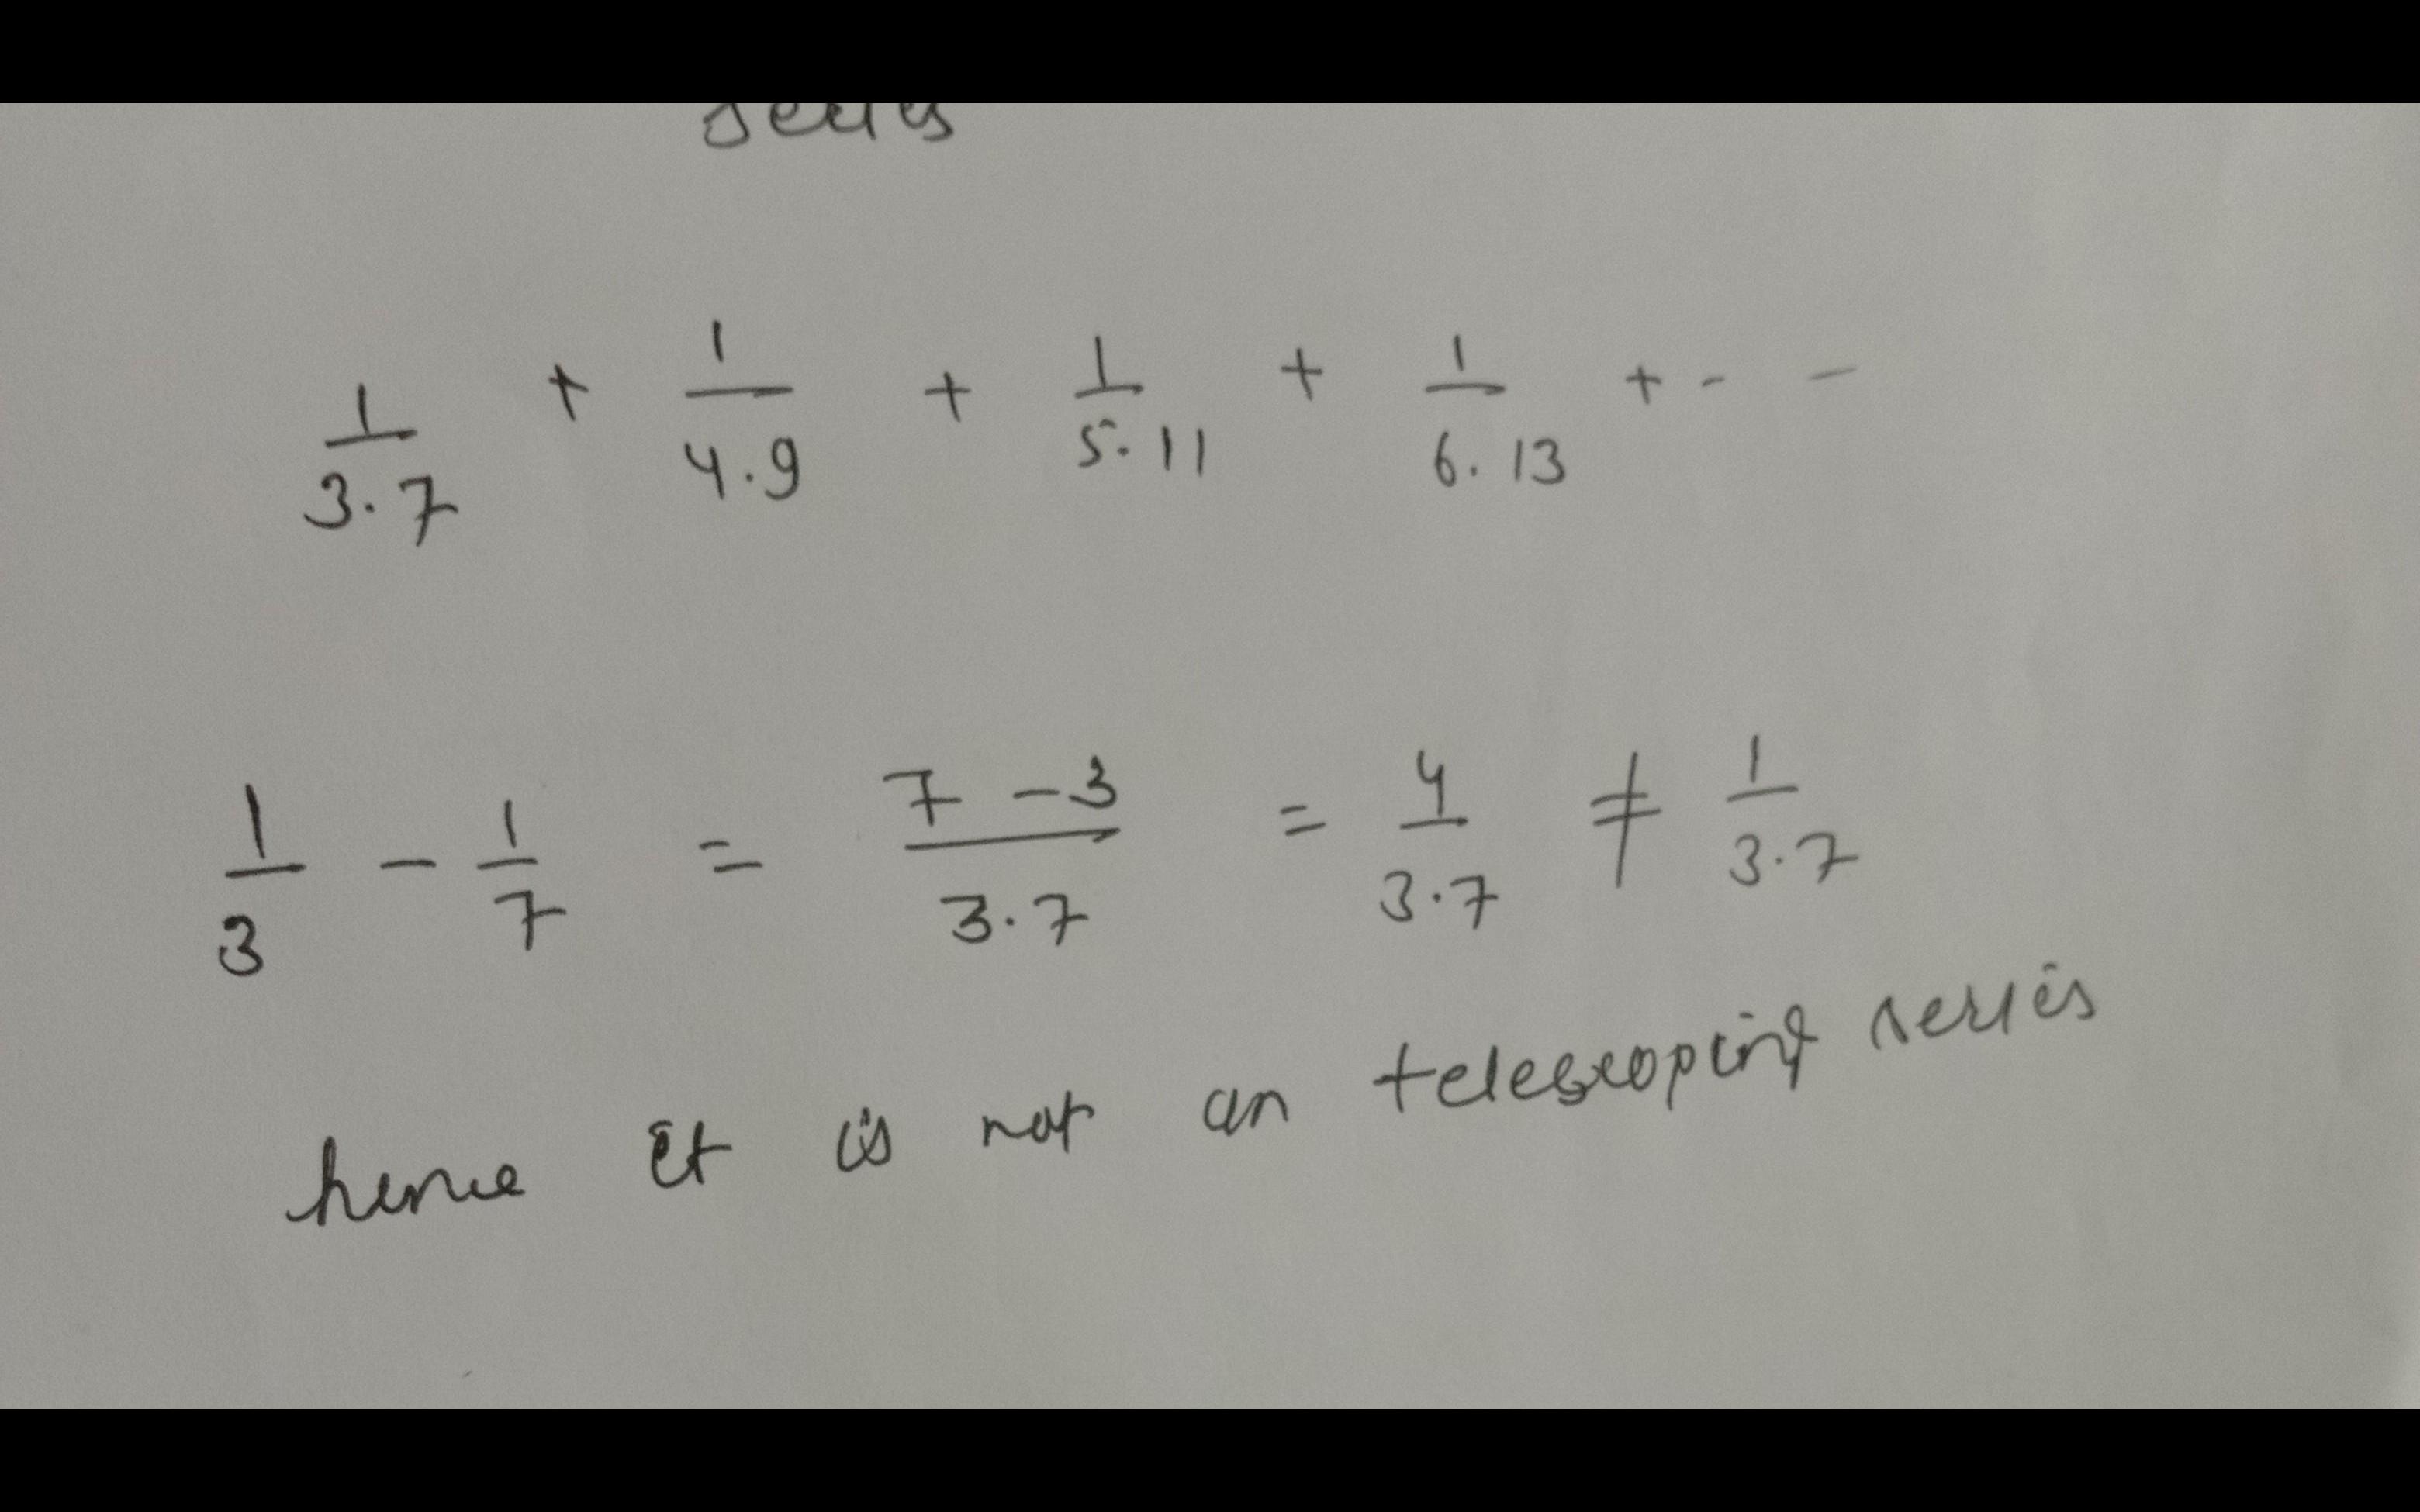 series
1/3.7 + 1/4.9 + 1/5.11 + 1/6.13 + - -
1/3 - 1/7 = 7-3/3.7 = 4/3.7 ≠ 1/3.7
hence it is not an telescoping series